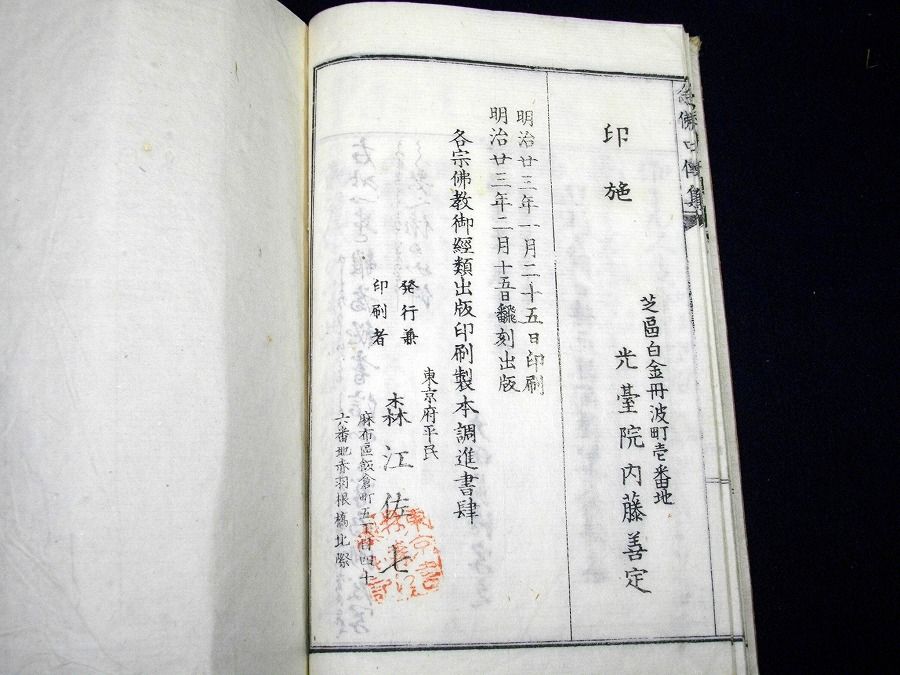 印施
芝區白金丹波町壱番地
光臺院内藤善定
明治廿三年一月二十五日印刷
明治廿三年二月十五日飜刻出版
各宗佛教御經類出版印刷製本調進書肆
東京府平民
發行兼
印刷者
森江佐七
麻布區飯倉町五丁目四十
六番地赤羽根橋北際